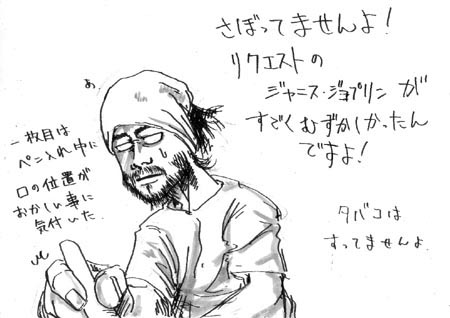 さぼってませんよ！
リクエストの
ジャニス・ジョプリンが
すごくむずかしかったん
ですよ！
あ
一枚目は
ペン入れ中に
口の位置が
おかしい事に
気付いた
タバコは
すってませんよ